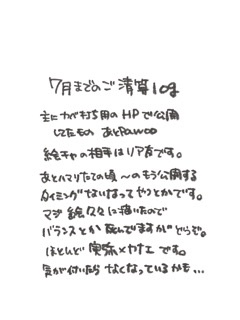 7月までのご清算log
主にカベ打ち用のHPで公開
してたもの あとPawoo
絵チャの相手はリア友です。
あとハマりたての頃〜のもう公開する
タイミングないなってやつとかです。
マジ絵久々に描いたので
バランスとか死んでますがどうぞ。
ほとんど実弥×カナエです。
気が付いたらなくなっているかも…